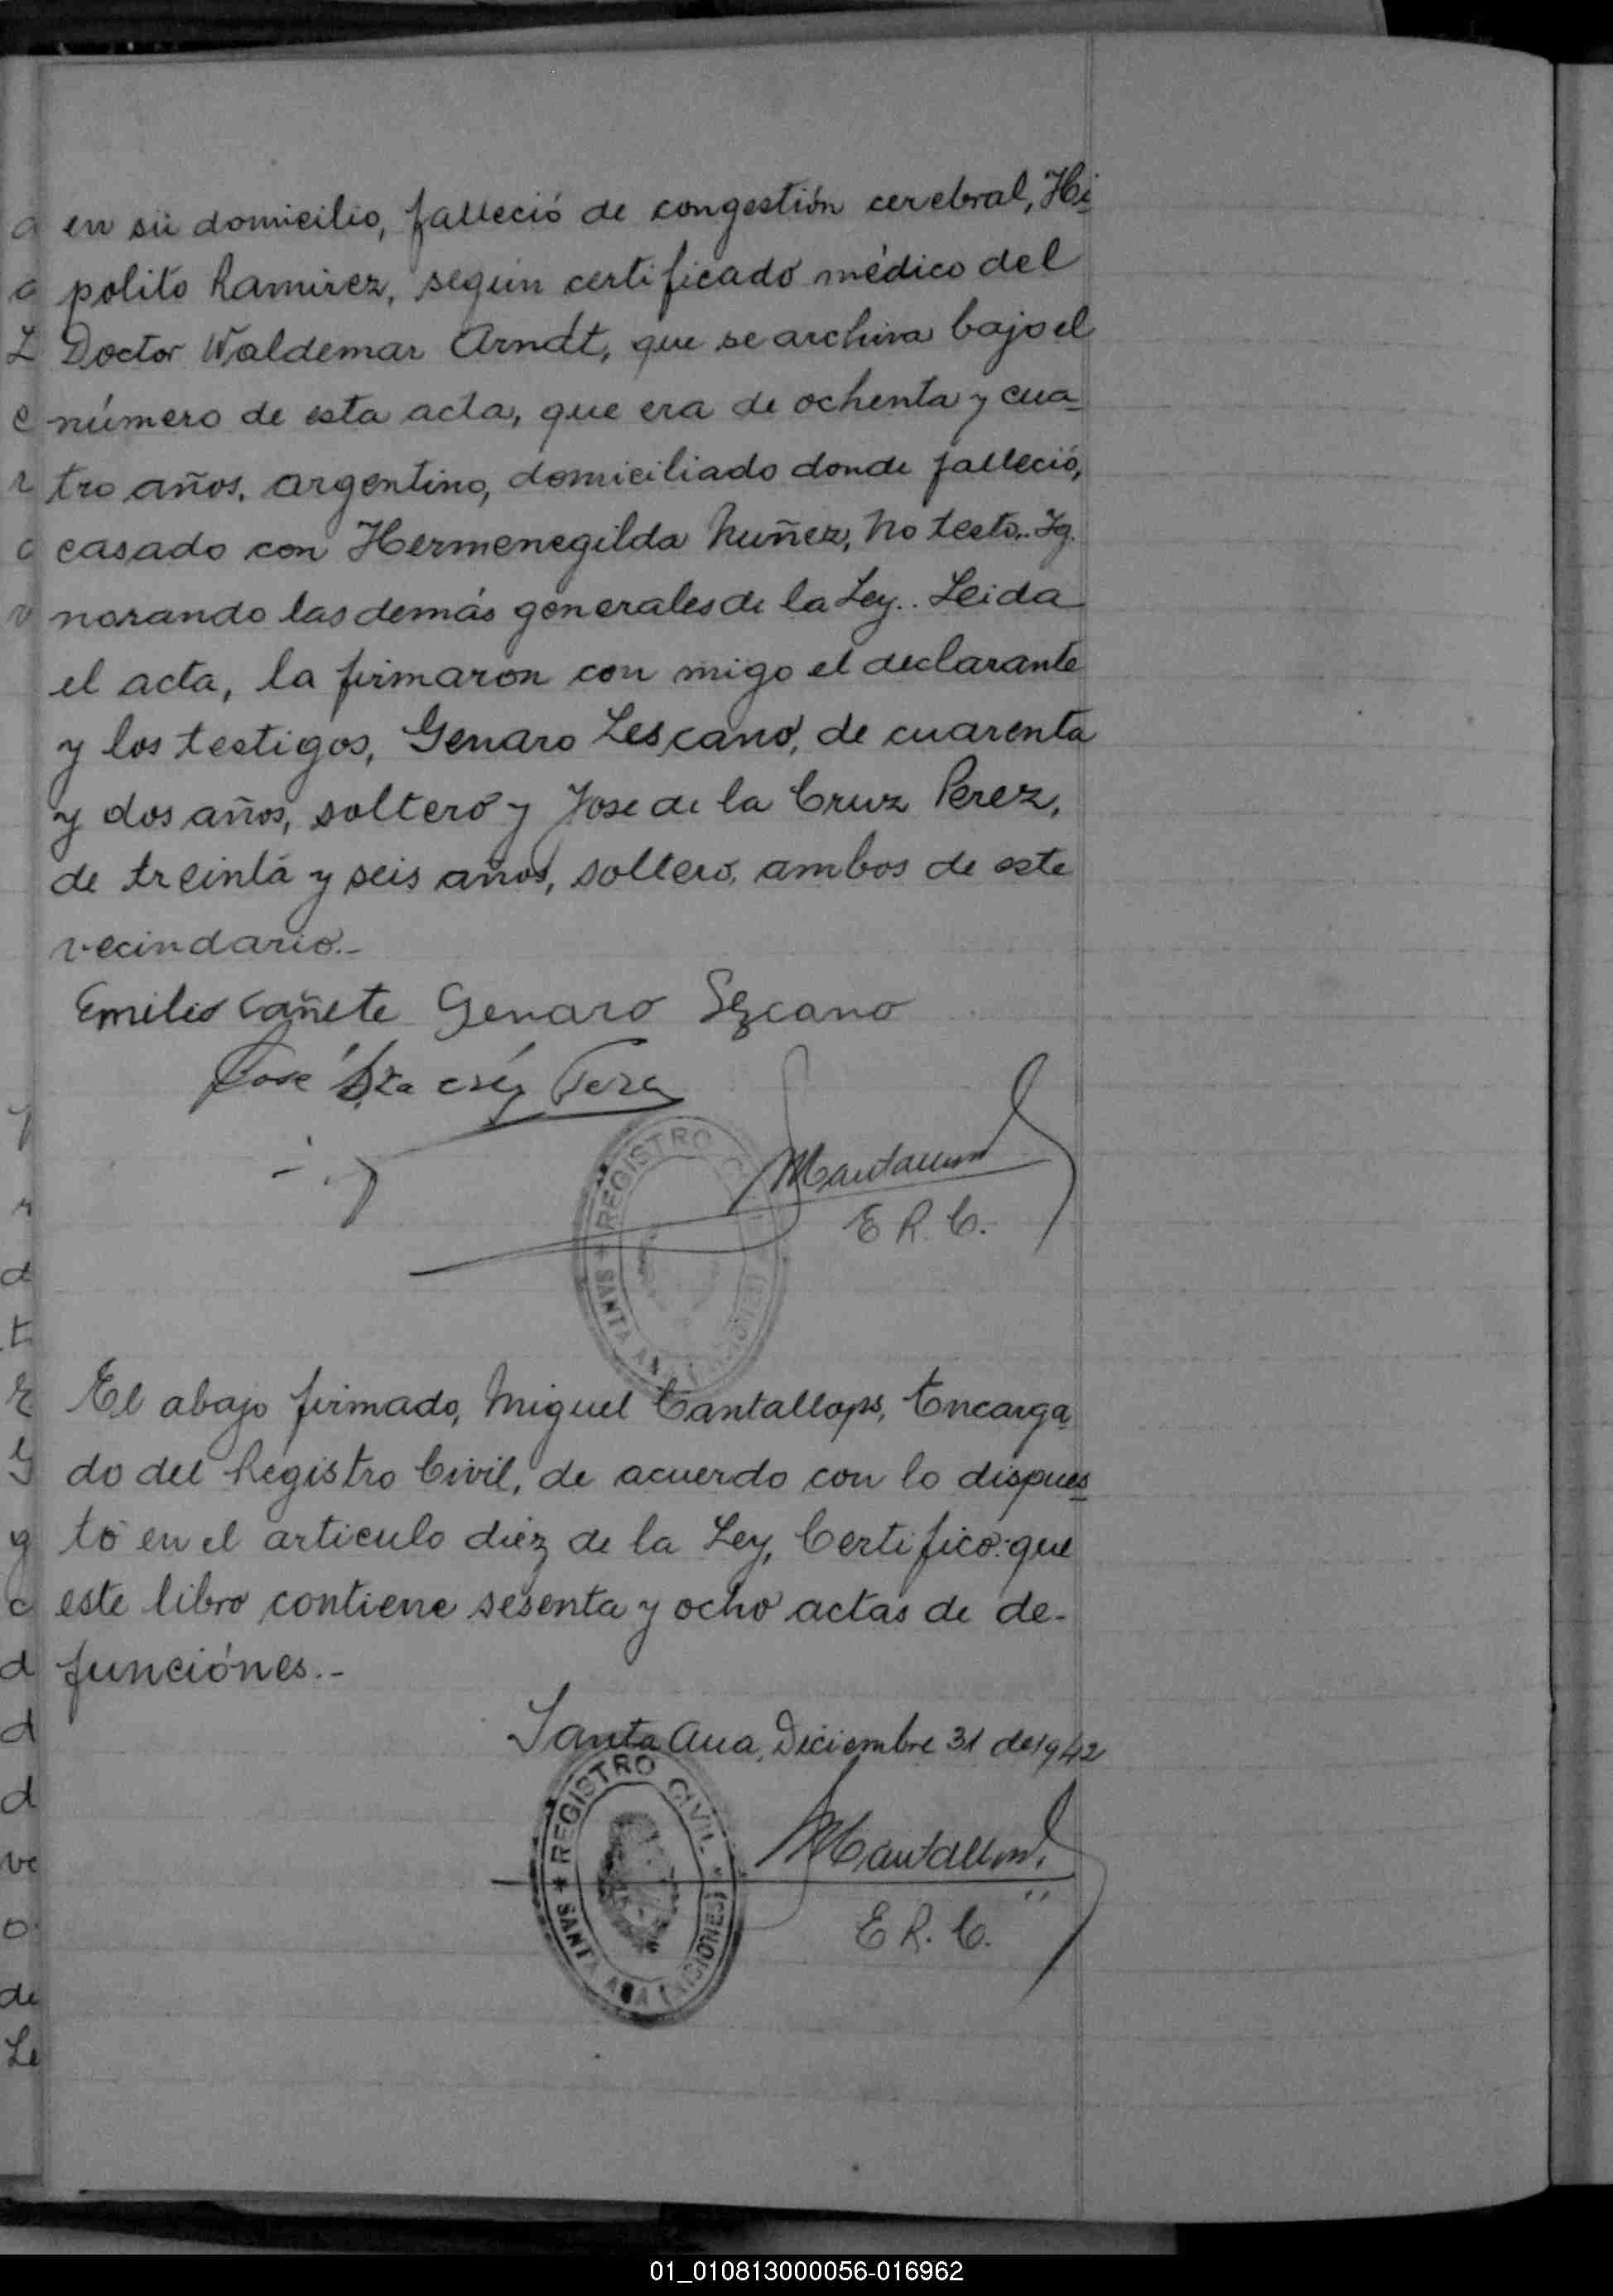 en su domicilio, falleció de congestión cerebral, Hi-
polito Ramirez, según certificado médico del
Doctor Waldemar Arndt, que se archiva bajo el
número de esta acta, que era de ochenta y cua-
tro años, argentino, domiciliado donde falleció,
casado con Hermenegilda Nuñez, no testo.. Ig-
norando las demás generales de la Ley.. Leida
el acta, la firmaron con migo el declarante
y los testigos, Genaro Lescano, de cuarenta
y dos años, soltero y Jose de la Cruz Perez,
de treinta y seis años, soltero, ambos de este
vecindario.-
Emilio Cañete Genaro Lezcano
José
REGISTRO
SANTA ANA
E R. C.
El abajo firmado, Miguel Cantallops, Encarga-
do del Registro Civil, de acuerdo con lo dispues-
to en el articulo diez de la Ley, Certifico: que
este libro contiene sesenta y ocho actas de de-
funciónes.-
Santa Ana, Diciembre 31 de 1942
REGISTRO CIVIL
* SANTA ANA (MISIONES) *
E R. C.
01_010813000056-016962